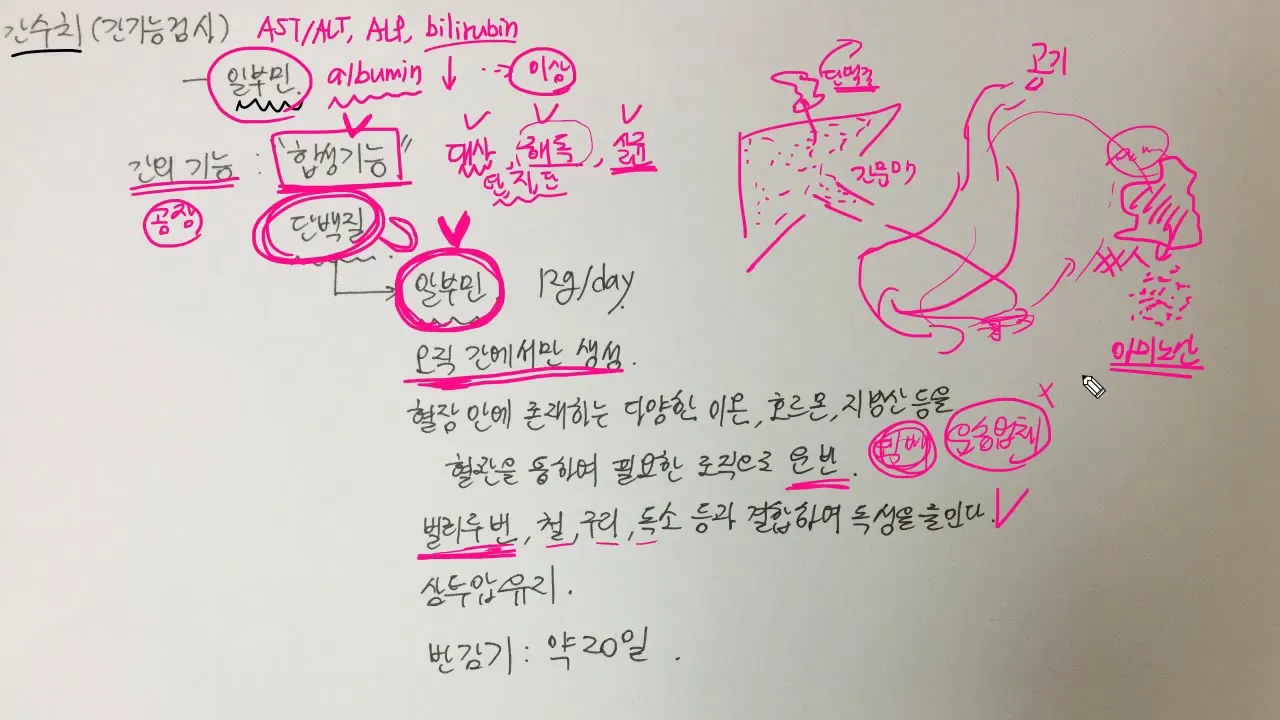 간수치 (간기능검사) AST/ALT, ALP, bilirubin
알부민. albumin ↓ 이상
간의 기능 : "합성기능" 대사, 해독, 살균
탄, 지, 단
공장
단백질
알부민 12g/day
오직 간에서만 생성.
혈장 안에 존재하는 다양한 이온, 호르몬, 지방산 등을
혈관을 통하여 필요한 조직으로 운반. 택배 운송업체
빌리루빈, 철, 구리, 독소 등과 결합하여 독성을 줄인다.
삼투압유지.
반감기 : 약 20일.
고기
단백질
간문맥
아미노산